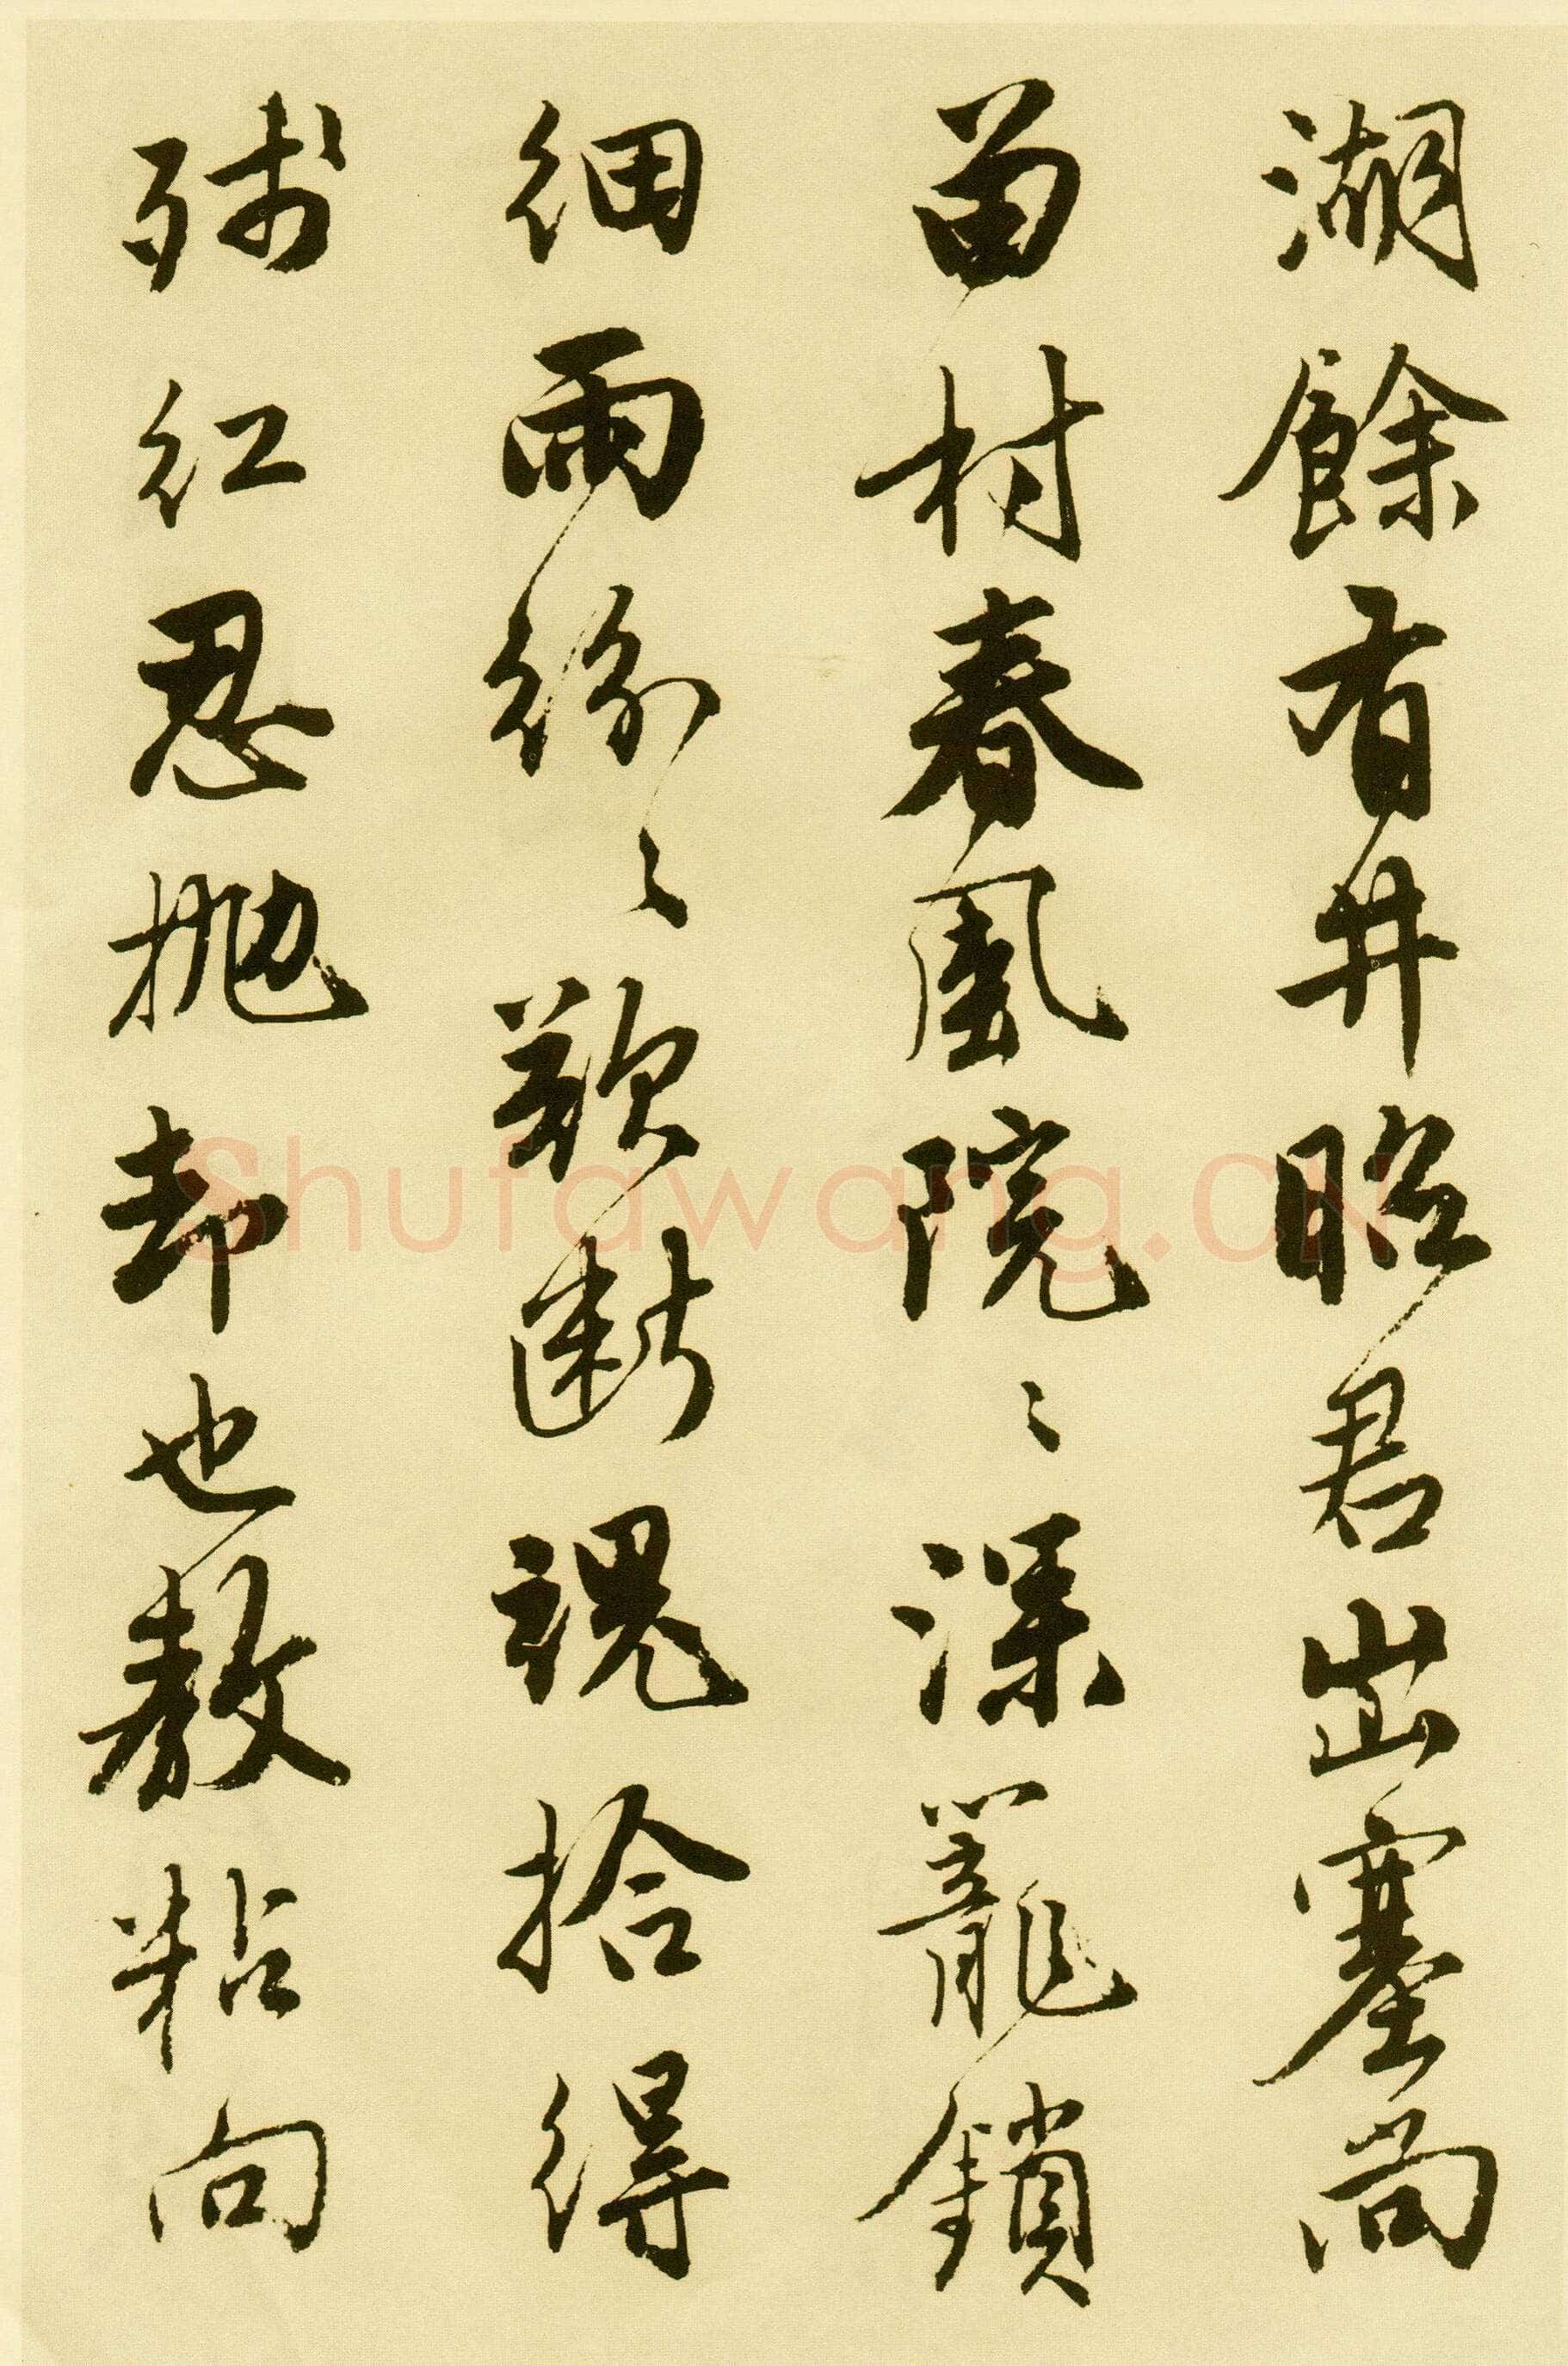 湖餘有井昭君出塞尚
留村春風院〻深籠鎖
細雨紛〻欲斷魂拾得
殘紅忍拋却也教粘向
Shufawang.CN